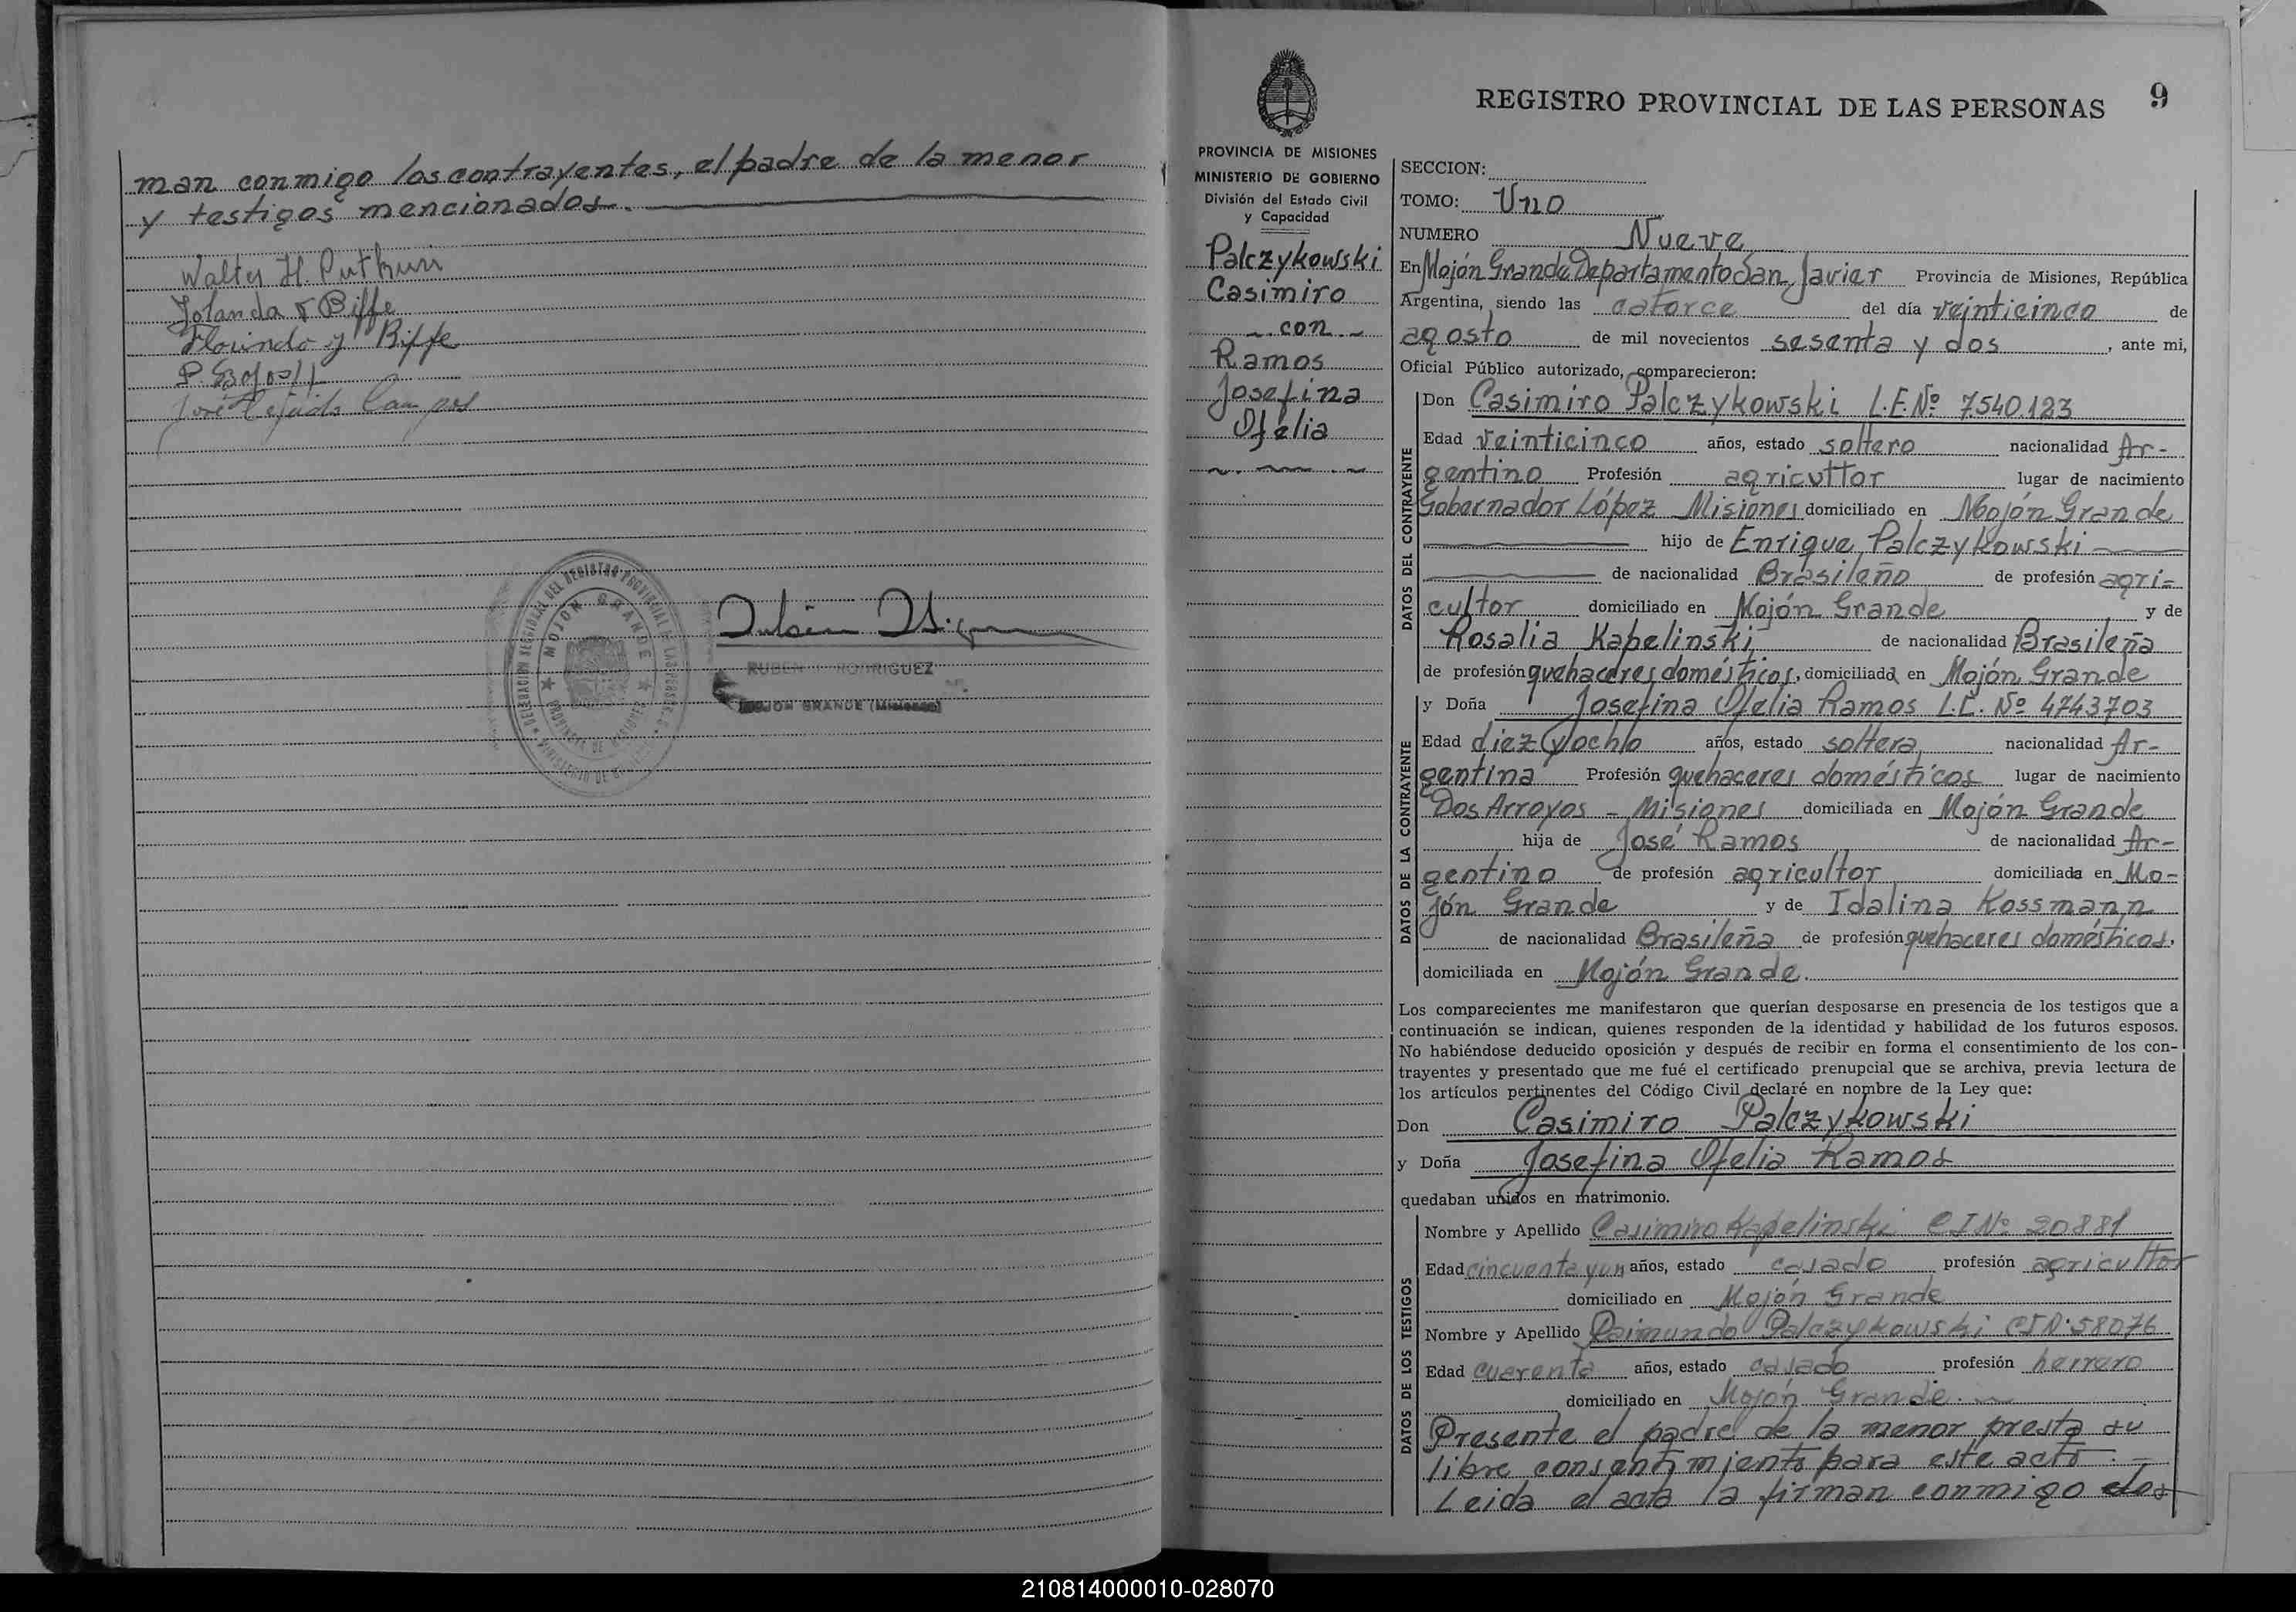 man conmigo los contrayentes, el padre de la menor
y testigos mencionados.
Walter H.
Jolanda Biffe
Florindo Biffe
P.
José Tejada Campos
MOJON GRANDE
PROVINCIA DE MISIONES
RUBEN RODRIGUEZ
MOJON GRANDE (Misiones)
9
REGISTRO PROVINCIAL DE LAS PERSONAS
PROVINCIA DE MISIONES
MINISTERIO DE GOBIERNO
División del Estado Civil
y Capacidad
Palczykowski
Casimiro
con
Ramos
Josefina
Ofelia
SECCION:
TOMO: Uno
NUMERO Nueve
En Mojón Grande Departamento San Javier Provincia de Misiones, República
Argentina, siendo las catorce del día veinticinco de
agosto de mil novecientos sesenta y dos, ante mi,
Oficial Público autorizado, comparecieron:
DATOS DEL CONTRAYENTE
Don Casimiro Palczykowski L.E.Nº 7540.123
Edad veinticinco años, estado soltero nacionalidad Ar-
gentino Profesión agricultor lugar de nacimiento
Gobernador López Misiones domiciliado en Mojón Grande
hijo de Enrique Palczykowski
de nacionalidad Brasileño de profesión agri-
cultor domiciliado en Mojón Grande y de
Rosalia Kapelinski de nacionalidad Brasileña
de profesión quehaceres domésticos, domiciliada en Mojón Grande
DATOS DE LA CONTRAYENTE
y Doña Josefina Ofelia Ramos L.C. Nº 4743703
Edad diez y ocho años, estado soltera nacionalidad Ar-
gentina Profesión quehaceres domésticos lugar de nacimiento
Dos Arroyos - Misiones domiciliada en Mojón Grande
hija de José Ramos de nacionalidad Ar-
gentino de profesión agricultor domiciliada en Mo-
jón Grande y de Idalina Kossmann
de nacionalidad Brasileña de profesión quehaceres domésticos,
domiciliada en Mojón Grande.
Los comparecientes me manifestaron que querían desposarse en presencia de los testigos que a
continuación se indican, quienes responden de la identidad y habilidad de los futuros esposos.
No habiéndose deducido oposición y después de recibir en forma el consentimiento de los con-
trayentes y presentado que me fué el certificado prenupcial que se archiva, previa lectura de
los artículos pertinentes del Código Civil declaré en nombre de la Ley que:
Don Casimiro Palczykowski
y Doña Josefina Ofelia Ramos
quedaban unidos en matrimonio.
DATOS DE LOS TESTIGOS
Nombre y Apellido Casimiro Kapelinski C I Nº 20881
Edad cincuenta y un años, estado casado profesión agricultor
domiciliado en Mojón Grande
Nombre y Apellido Raimundo Palczykowski C I Nº 58076
Edad cuarenta años, estado casado profesión herrero
domiciliado en Mojón Grande.
Presente el padre de la menor presta su
libre consentimiento para este acto. -
Leida el acta la firman conmigo los
210814000010-028070